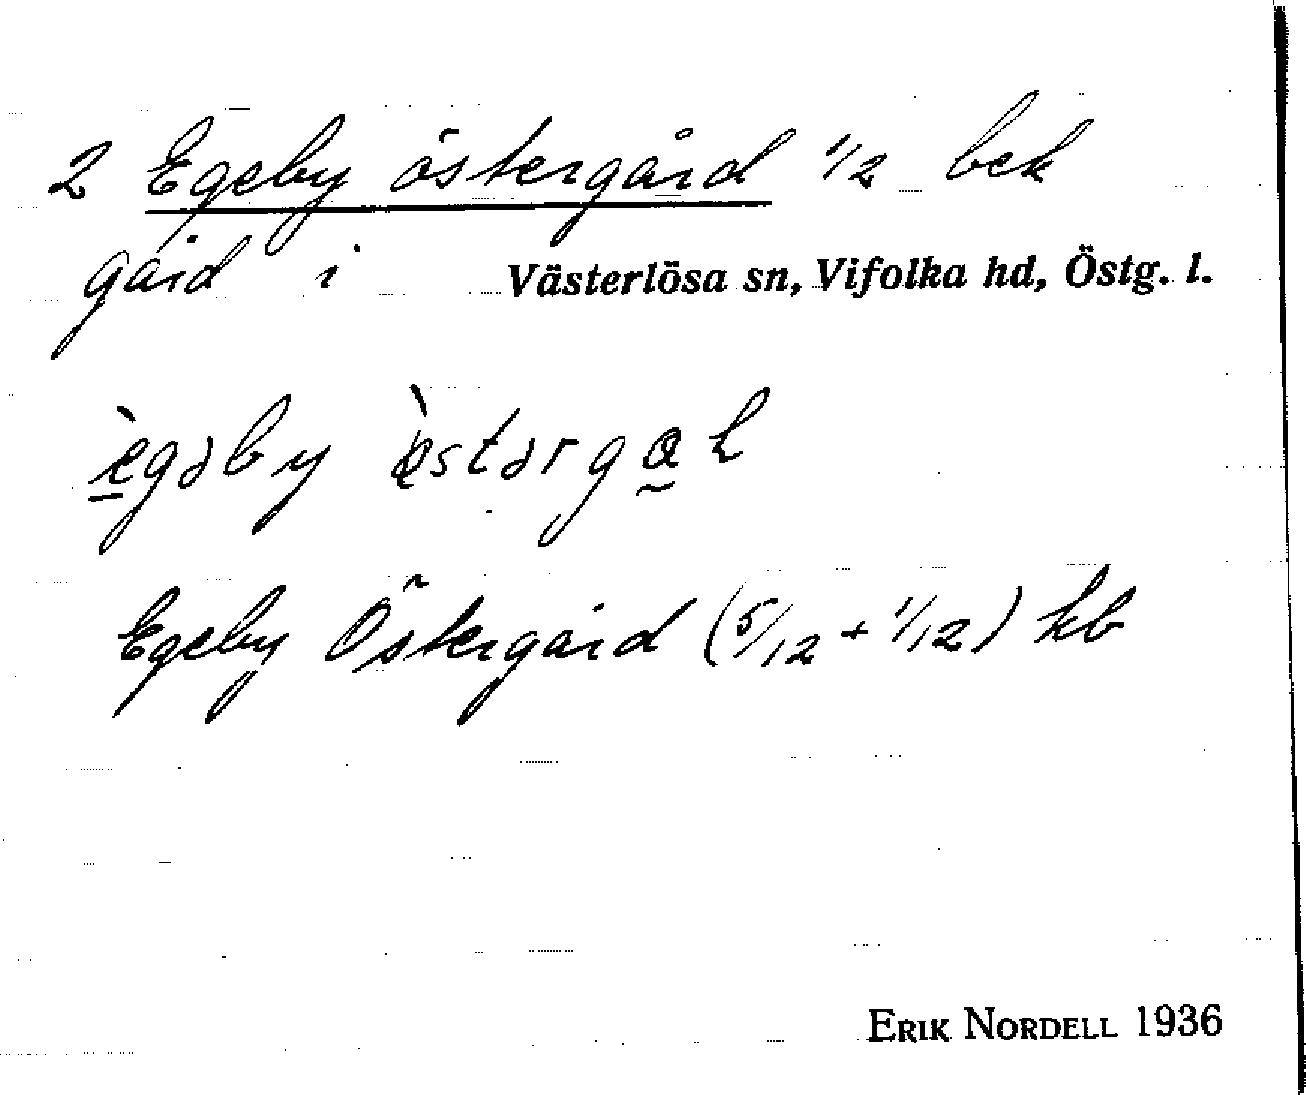 2 Egeby östergård 1/2 bek
gård i Västerlösa sn, Vifolka hd, Östg. l.
ègəby östərgaḥ
Egeby Östergård (5/12 + 1/12) kb
ERIK NORDELL 1936